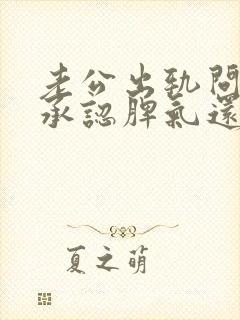 老公出軌問
承認脾氣還
夏之萌